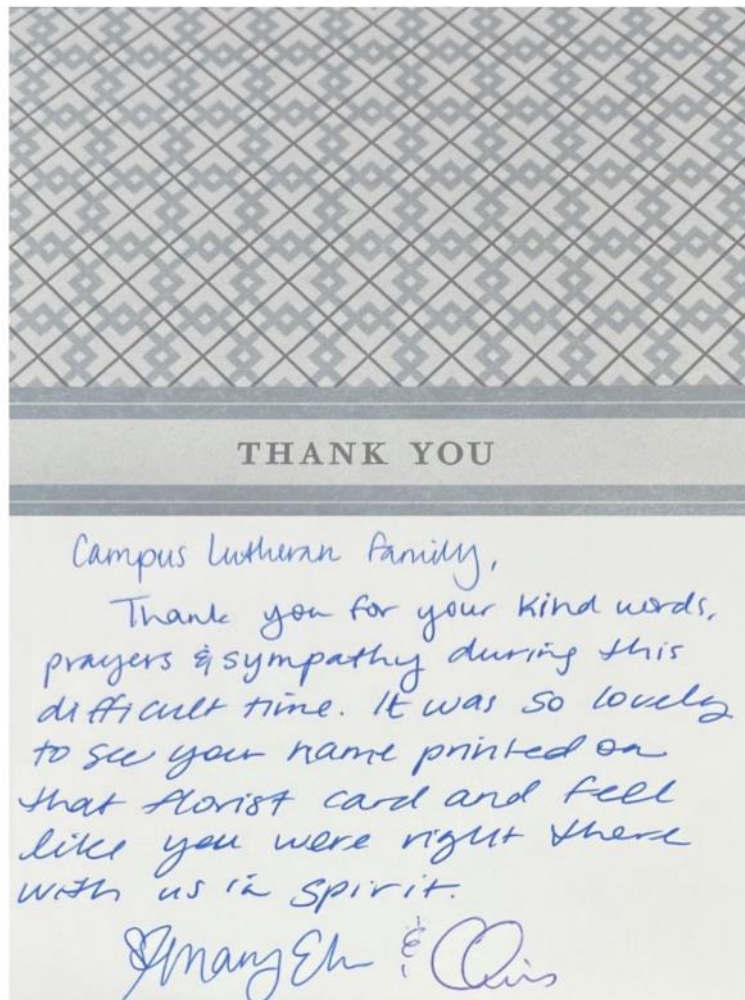 THANK YOU
Campus Lutheran Family,
Thank you for your kind words,
prayers & sympathy during this
difficult time. It was so lovely
to see your name printed on
that florist card and feel
like you were right there
with us in spirit.
Mary &